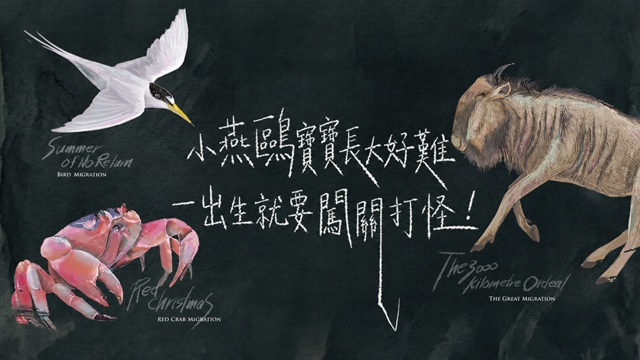 小燕鷗寶寶長大好難
一出生就要闖關打怪！
Summer
of No Return
BIRD MIGRATION
Red
Christmas
RED CRAB MIGRATION
The 3000
Kilometre Ordeal
THE GREAT MIGRATION